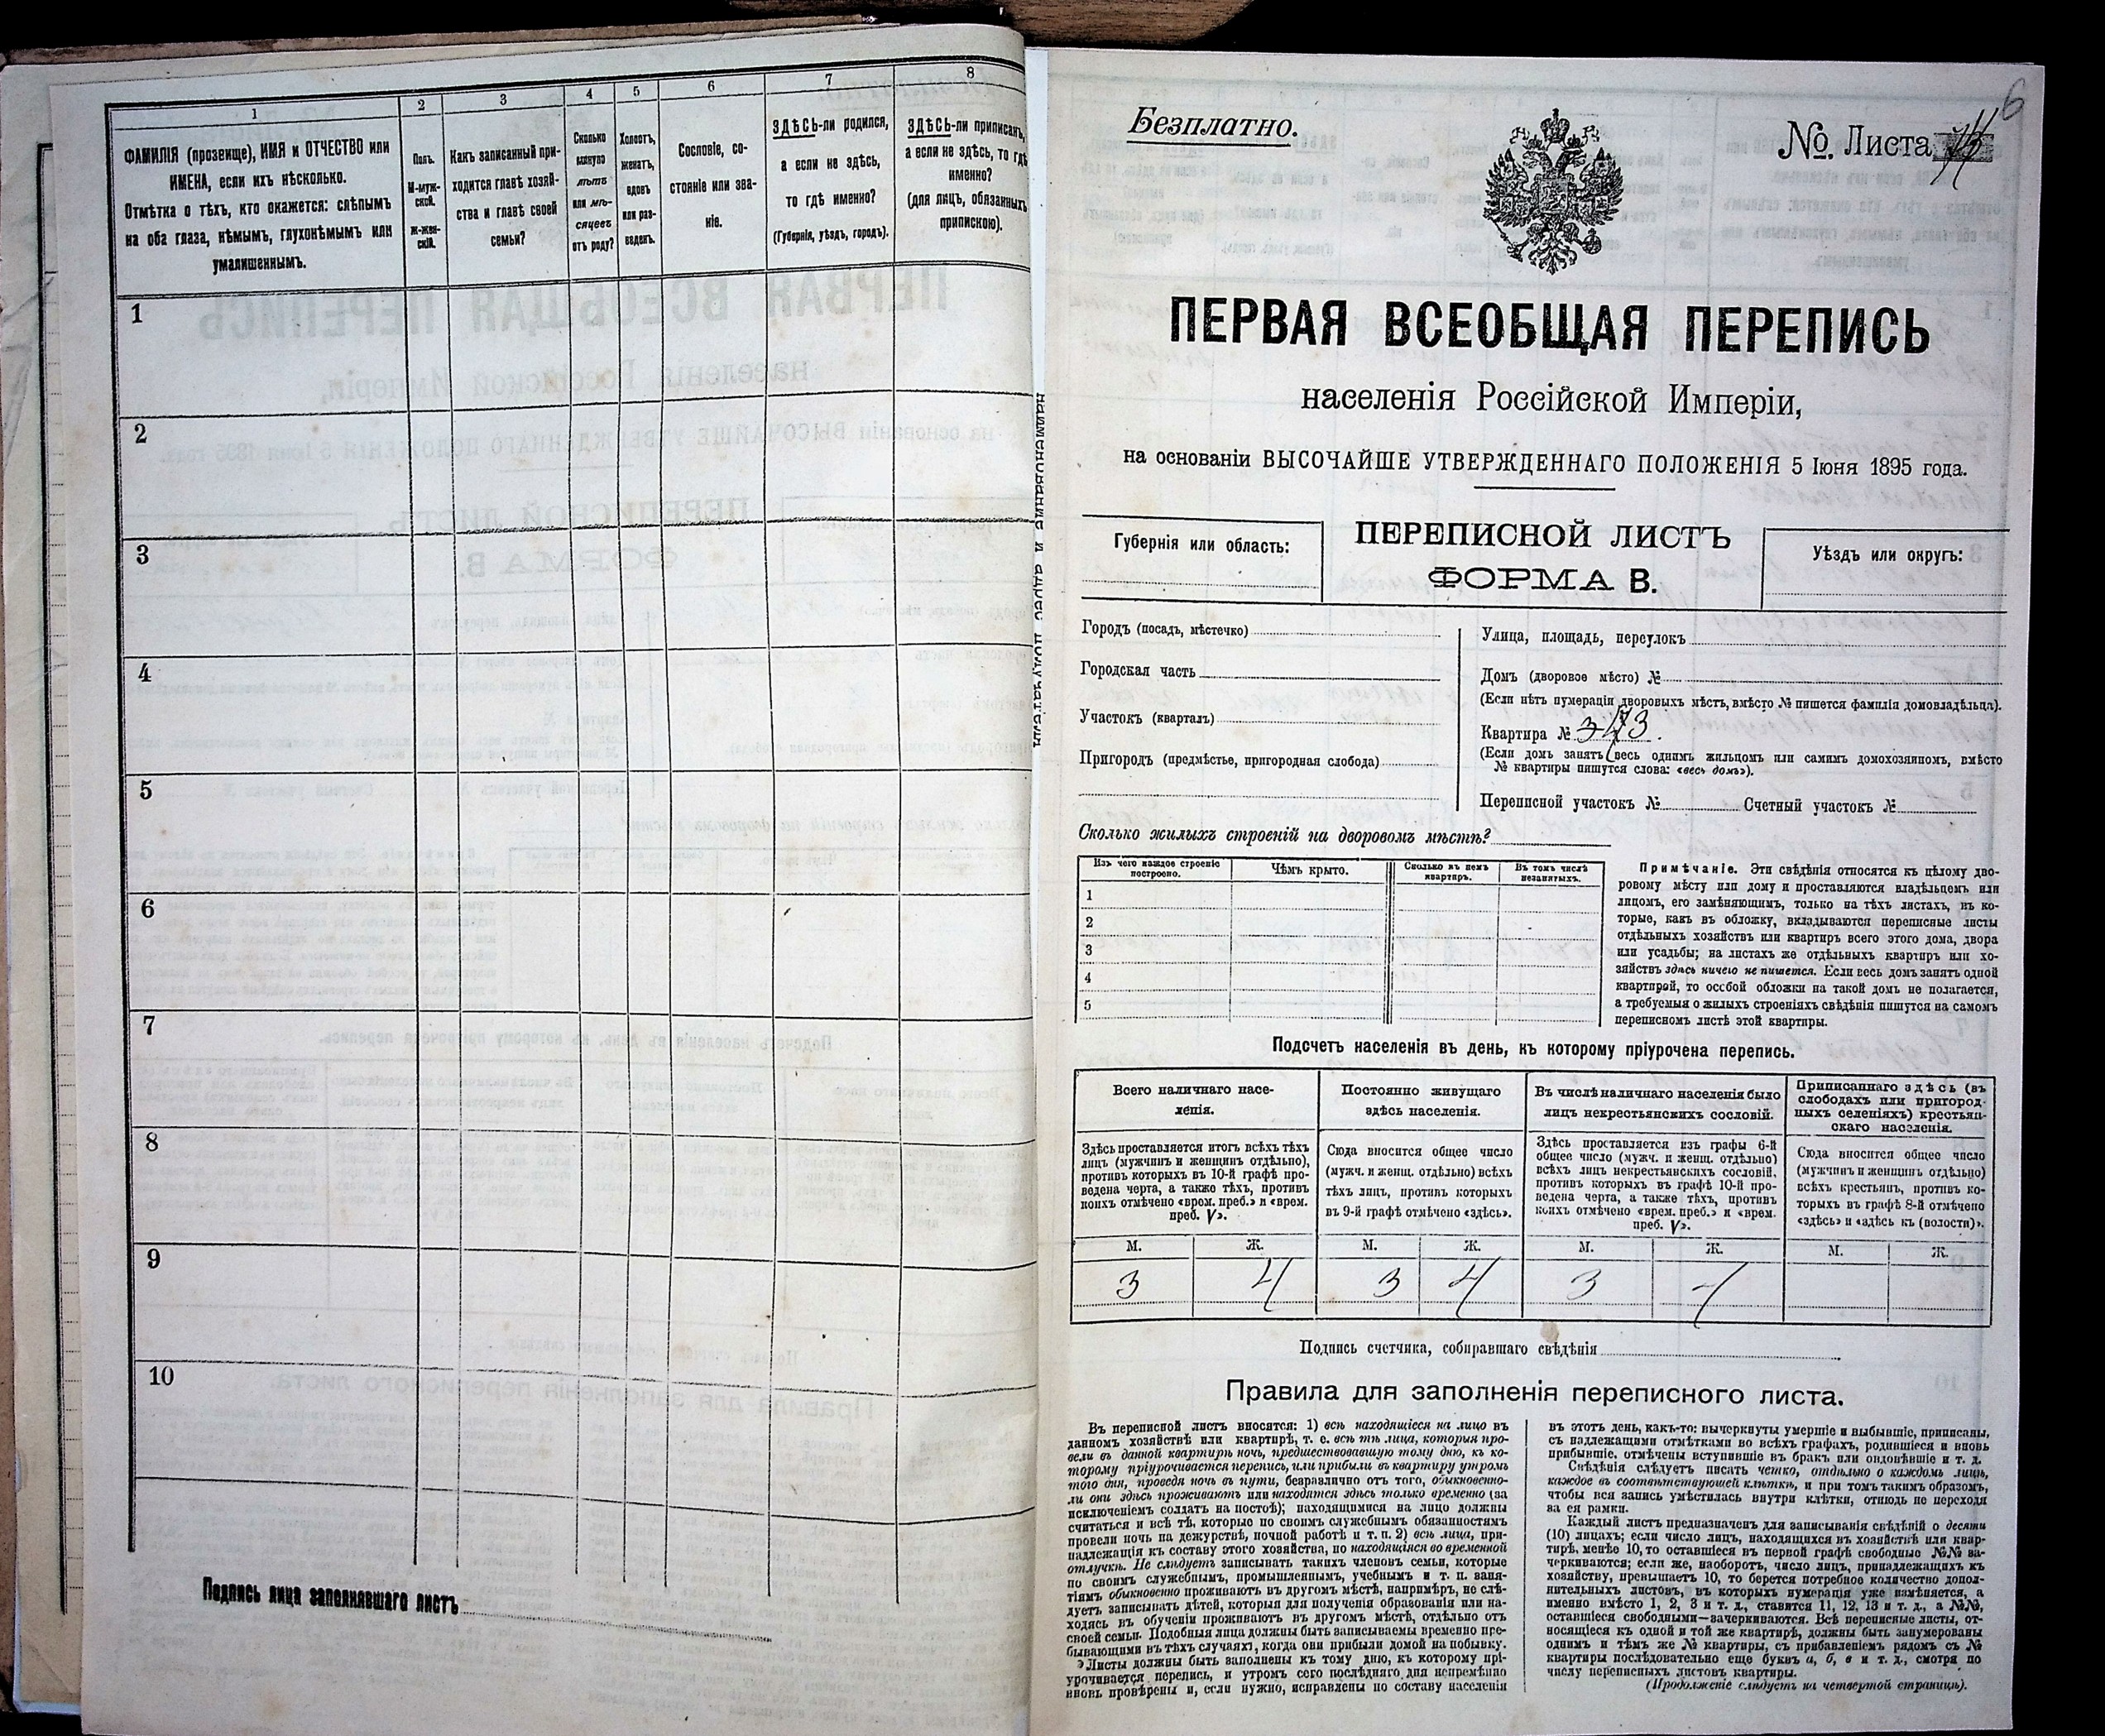 1
2
3
4
5
6
7
8
ФАМИЛІЯ (прозвище), ИМЯ и ОТЧЕСТВО или
ИМЕНА, если ихъ нѣсколько.
Отмѣтка о тѣхъ, кто окажется: слѣпымъ
на оба глаза, нѣмымъ, глухонѣмымъ или
умалишеннымъ.
Полъ.
М-муж-
ской.
Ж-жен-
скій.
Какъ записанный при-
ходится главѣ хозяй-
ства и главѣ своей
семьи?
Сколько
минуло
лѣтъ
или мѣ-
сяцевъ
отъ роду?
Холостъ,
женатъ,
вдовъ
или раз-
веденъ.
Сословіе, со-
стояніе или зва-
ніе.
ЗДѢСЬ-ли родился,
а если не здѣсь,
то гдѣ именно?
(Губернія, уѣздъ, городъ).
ЗДѢСЬ-ли приписанъ,
а если не здѣсь, то гдѣ
именно?
(для лицъ, обязанныхъ
припискою).
1
2
3
4
5
6
7
8
9
10
Подпись лица заполнявшаго листъ
6
Безплатно.
№ Листа
ПЕРВАЯ ВСЕОБЩАЯ ПЕРЕПИСЬ
населенія Россійской Имперіи,
на основаніи ВЫСОЧАЙШЕ УТВЕРЖДЕННАГО ПОЛОЖЕНІЯ 5 Іюня 1895 года.
Губернія или область:
ПЕРЕПИСНОЙ ЛИСТЪ
ФОРМА В.
Уѣздъ или округъ:
Городъ (посадъ, мѣстечко)
Городская часть
Участокъ (кварталъ)
Пригородъ (предмѣстье, пригородная слобода)
Улица, площадь, переулокъ
Домъ (дворовое мѣсто) №
(Если нѣтъ нумераціи дворовыхъ мѣстъ, вмѣсто № пишется фамилія домовладѣльца).
Квартира №
(Если домъ занятъ весь однимъ жильцомъ или самимъ домохозяиномъ, вмѣсто
№ квартиры пишутся слова: «весь домъ»).
Переписной участокъ № Счетный участокъ №
Сколько жилыхъ строеній на дворовомъ мѣстѣ?
Изъ чего каждое строеніе
построено.
Чѣмъ крыто.
Сколько въ немъ
квартиръ.
Въ томъ числѣ
незанятыхъ.
1
2
3
4
5
Примѣчаніе. Эти свѣдѣнія относятся къ цѣлому дво-
ровому мѣсту или дому и проставляются владѣльцемъ или
лицомъ, его замѣняющимъ, только на тѣхъ листахъ, въ ко-
торые, какъ въ обложку, вкладываются переписные листы
отдѣльныхъ хозяйствъ или квартиръ всего этого дома, двора
или усадьбы; на листахъ же отдѣльныхъ квартиръ или хо-
зяйствъ здѣсь ничего не пишется. Если весь домъ занятъ одной
квартирой, то особой обложки на такой домъ не полагается,
а требуемыя о жилыхъ строеніяхъ свѣдѣнія пишутся на самомъ
переписномъ листѣ этой квартиры.
Подсчетъ населенія въ день, къ которому пріурочена перепись.
Всего наличнаго насе-
ленія.
Постоянно живущаго
здѣсь населенія.
Въ числѣ наличнаго населенія было
лицъ некрестьянскихъ сословій.
Приписаннаго здѣсь (въ
слободахъ или пригород-
ныхъ селеніяхъ) крестьян-
скаго населенія.
Здѣсь проставляется итогъ всѣхъ тѣхъ
лицъ (мужчинъ и женщинъ отдѣльно),
противъ которыхъ въ 10-й графѣ про-
ведена черта, а также тѣхъ, противъ
коихъ отмѣчено «врем. преб.» и «врем.
преб. V».
Сюда вносится общее число
(мужч. и женщ. отдѣльно) всѣхъ
тѣхъ лицъ, противъ которыхъ
въ 9-й графѣ отмѣчено «здѣсь».
Здѣсь проставляется изъ графы 6-й
общее число (мужч. и женщ. отдѣльно)
всѣхъ лицъ некрестьянскихъ сословій,
противъ которыхъ въ графѣ 10-й про-
ведена черта, а также тѣхъ, противъ
коихъ отмѣчено «врем. преб.» и «врем.
преб. V».
Сюда вносится общее число
(мужчинъ и женщинъ отдѣльно)
всѣхъ крестьянъ, противъ ко-
торыхъ въ графѣ 8-й отмѣчено
«здѣсь» и «здѣсь къ (волости)».
М. Ж. М. Ж. М. Ж. М. Ж.
3 4 3 4 3 4
Подпись счетчика, собиравшаго свѣдѣнія
Правила для заполненія переписного листа.
Въ переписной листъ вносятся: 1) всѣ находящіеся на лицо въ
данномъ хозяйствѣ или квартирѣ, т. е. всѣ тѣ лица, которыя про-
вели въ данной квартирѣ ночь, предшествовавшую тому дню, къ ко-
торому пріурочивается перепись, или прибыли въ квартиру утромъ
того дня, проведя ночь въ пути, безразлично отъ того, обыкновенно-
ли они здѣсь проживаютъ или находятся здѣсь только временно (за
исключеніемъ солдатъ на постоѣ); находящимися на лицо должны
считаться и всѣ тѣ, которые по своимъ служебнымъ обязанностямъ
провели ночь на дежурствѣ, ночной работѣ и т. п. 2) всѣ лица, при-
надлежащія къ составу этого хозяйства, но находящіяся во временной
отлучкѣ. Не слѣдуетъ записывать такихъ членовъ семьи, которые
по своимъ служебнымъ, промышленнымъ, учебнымъ и т. п. заня-
тіямъ обыкновенно проживаютъ въ другомъ мѣстѣ, напримѣръ, не слѣ-
дуетъ записывать дѣтей, которыя для полученія образованія или на-
ходясь въ обученіи проживаютъ въ другомъ мѣстѣ, отдѣльно отъ
своей семьи. Подобныя лица должны быть записываемы временно пре-
бывающими въ тѣхъ случаяхъ, когда они прибыли домой на побывку.
Листы должны быть заполнены къ тому дню, къ которому прі-
урочивается перепись, и утромъ сего послѣдняго дня непремѣнно
вновь провѣрены и, если нужно, исправлены по составу населенія
въ этотъ день, какъ-то: вычеркнуты умершіе и выбывшіе, приписаны,
съ надлежащими отмѣтками во всѣхъ графахъ, родившіеся и вновь
прибывшіе, отмѣчены вступившіе въ бракъ или овдовѣвшіе и т. д.
Свѣдѣнія слѣдуетъ писать четко, отдѣльно о каждомъ лицѣ,
каждое въ соотвѣтствующей клѣткѣ, и при томъ такимъ образомъ,
чтобы вся запись умѣстилась внутри клѣтки, отнюдь не переходя
за ея рамки.
Каждый листъ предназначенъ для записыванія свѣдѣній о десяти
(10) лицахъ; если число лицъ, находящихся въ хозяйствѣ или квар-
тирѣ, менѣе 10, то оставшіеся въ первой графѣ свободные №№ за-
черкиваются; если же, наоборотъ, число лицъ, принадлежащихъ къ
хозяйству, превышаетъ 10, то берется потребное количество допол-
нительныхъ листовъ, въ которыхъ нумерація уже измѣняется, а
именно вмѣсто 1, 2, 3 и т. д., ставятся 11, 12, 13 и т. д., а №№,
оставшіеся свободными—зачеркиваются. Всѣ переписные листы, от-
носящіеся къ одной и той же квартирѣ, должны быть занумерованы
однимъ и тѣмъ же № квартиры, съ прибавленіемъ рядомъ съ №
квартиры послѣдовательно еще буквъ а, б, в и т. д., смотря по
числу переписныхъ листовъ квартиры.
(Продолженіе слѣдуетъ на четвертой страницѣ).